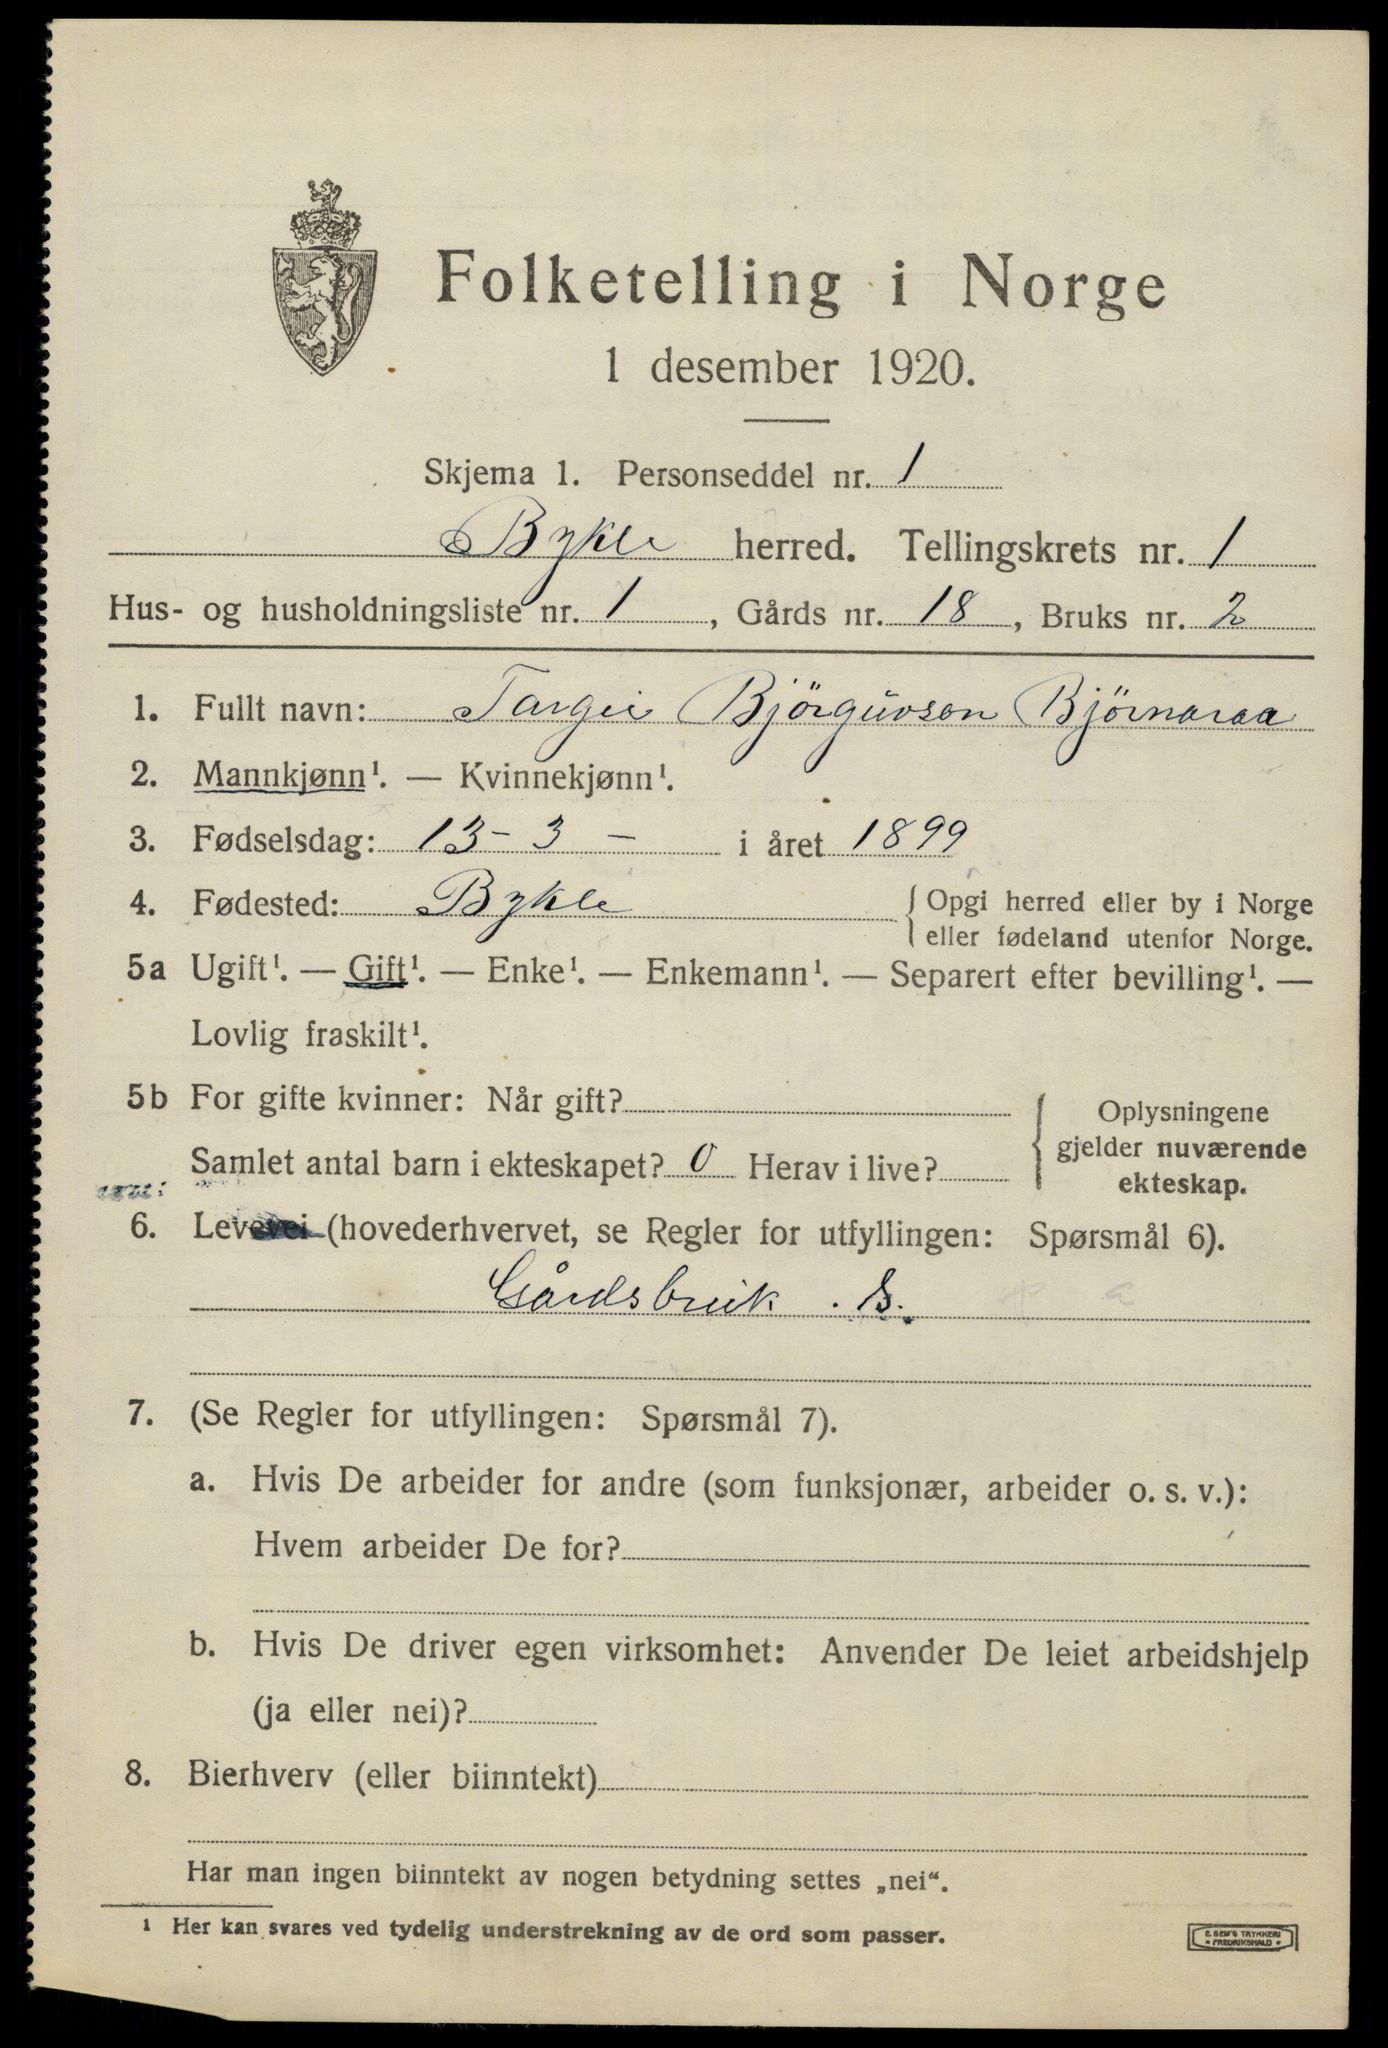 Folketelling i Norge
1 desember 1920.
Skjema 1. Personseddel nr. 1
Bykle herred. Tellingskrets nr. 1
Hus- og husholdningsliste nr. 1, Gårds nr. 18, Bruks nr. 2
1. Fullt navn: Targei Björguvson Björnaraa
2. Mannkjønn¹. — Kvinnekjønn¹.
3. Fødselsdag: 13-3- i året 1899
4. Fødested: Bykle { Opgi herred eller by i Norge
eller fødeland utenfor Norge.
5a Ugift¹. — Gift¹. — Enke¹. — Enkemann¹. — Separert efter bevilling¹. —
Lovlig fraskilt¹.
5b For gifte kvinner: Når gift? { Oplysningene
gjelder nuværende
Samlet antal barn i ekteskapet? 0 Herav i live?
ekteskap.
6. Levevei (hovederhvervet, se Regler for utfyllingen: Spørsmål 6).
Gårdsbruk. S.
7. (Se Regler for utfyllingen: Spørsmål 7).
a. Hvis De arbeider for andre (som funksjonær, arbeider o. s. v.):
Hvem arbeider De for?
b. Hvis De driver egen virksomhet: Anvender De leiet arbeidshjelp
(ja eller nei)?
8. Bierhverv (eller biinntekt)
Har man ingen biinntekt av nogen betydning settes „nei“.
¹ Her kan svares ved tydelig understrekning av de ord som passer.
E. SEM'S TRYKKERI
• FREDRIKSHALD •